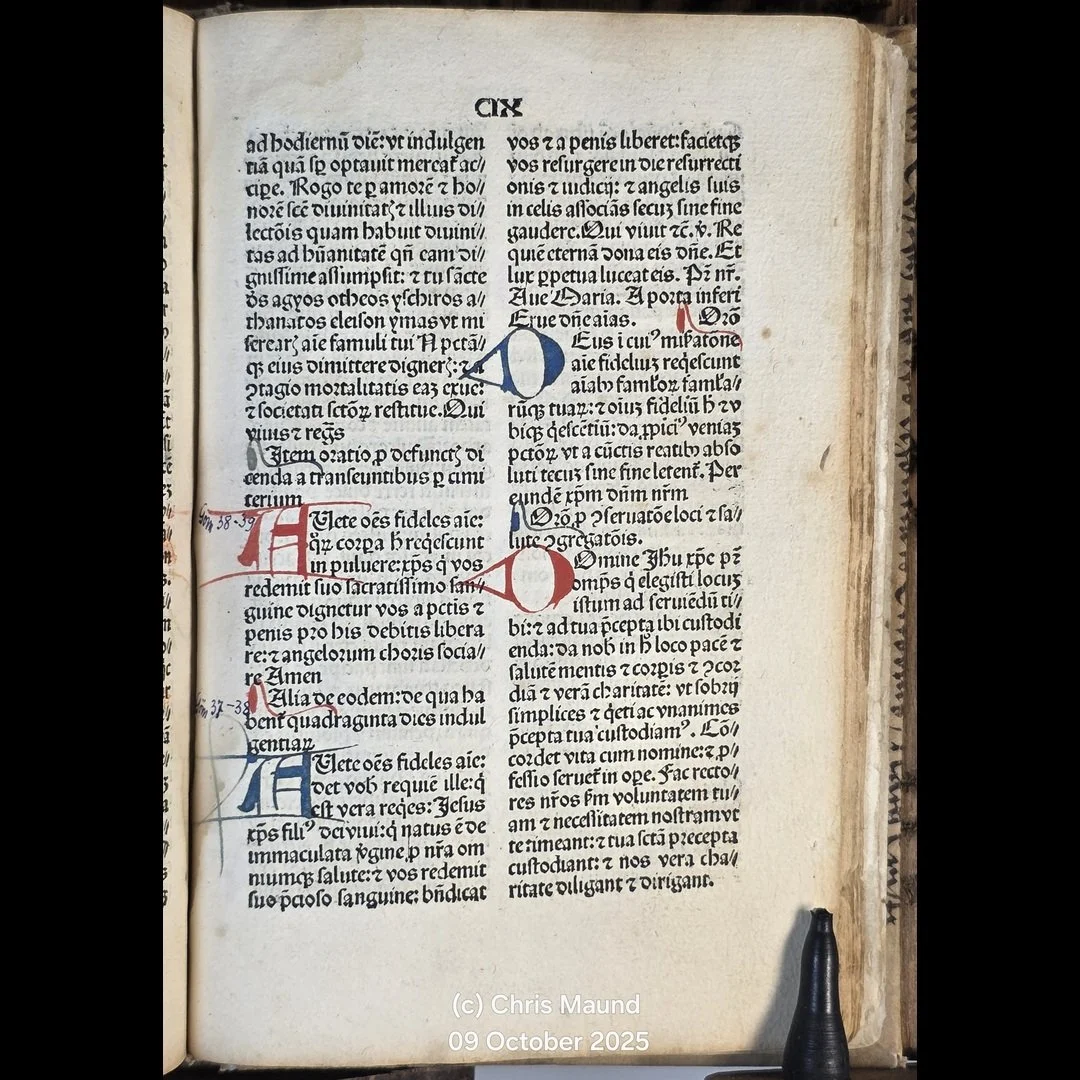 CIX
ad hodiernū diē: vt indulgen
tiā quā sꝑ optauit mereat᷑ ac//
cipe. Rogo te ꝑ amorē ⁊ ho//
norē scē diuinitatꝭ ⁊ illius di//
lectōis quam habuit diuini//
tas ad hūanitatē qn̄ eam di//
gnissime assumpsit: ⁊ tu sācte
ds̄ agyos otheos yschiros a//
thanatos eleison ymas vt mi
serearꝭ aīe famuli tui N pctā//
qꝫ eius dimittere dignerꝭ: ⁊ a
ↄtagio mortalitatis eaꝫ exue:
⁊ societati sctōꝝ restitue. Qui
viuis ⁊ regꝭs
Item oratio ꝓ defunctꝭ di
cenda a transeuntibus ꝑ cimi
terium
AUete oēs fideles aīe:
qꝝ corpa h̄ reqescunt
in puluere: xp̄s q̇ vos
redemit suo sacratissimo san//
guine dignetur vos a pctīs ⁊
penis pro his debitis libera
re: ⁊ angelorum choris socia//
re Amen
Alia de eodem: de qua ha
bent᷑ quadraginta dies indul
gentiaꝝ
AUete oēs fideles aīe:
det vob̄ requiē ille: q̇
est vera reqes: Jesus
xp̄s filiꝰ dei viui: q̇ natus ē de
immaculata v̇gine ꝓ nr̄a om
niumqꝫ salute: ⁊ vos redemit
suo p̄cioso sanguine: bn̄dicat
vos ⁊ a penis liberet: facietqꝫ
vos resurgere in die resurrecti
onis ⁊ iudicij: ⁊ angelis suis
in celis associās secuꝫ sine fine
gaudere. Qui viuit ⁊c̄. v̇. Re
quiē eternā dona eis dn̄e. Et
lux ꝑpetua luceat eis. Pr̄ nr̄.
Aue Maria. A porta inferi
Erue dn̄e aīas. Orō
DEus ī cuiꝰ mis̄atōne
aīe fideliuꝫ reqescunt
aīabꝰ famƚoꝝ famƚa//
rūqꝫ tuaꝝ: ⁊ oīuꝫ fideliū h̄ ⁊ v
biqꝫ q̇escētiū: da ꝓpiciꝰ veniaꝫ
pctōꝝ vt a cūctis reatibꝰ abso
luti tecuꝫ sine fine letent᷑. Per
eundē xp̄m dn̄m nr̄m
Orō ꝓ ↄseruatōe loci ⁊ sa//
lute ↄgregatōis.
DOmine Jhu xp̄e pr̄
omp̄s q̇ elegisti locuꝫ
istum ad seruiēdū ti//
bi: ⁊ ad tua p̄cepta ibi custodi
enda: da nob̄ in h̄ loco pacē ⁊
salutē mentis ⁊ corpis ⁊ ↄcor
diā ⁊ verā charitatē: vt sobrij
simplices ⁊ q̇eti ac vnanimes
p̄cepta tua custodiamꝰ. Cō//
cordet vita cum nomine: ⁊ ꝓ//
fessio seruet᷑ in ope. Fac recto//
res nr̄os ẜm voluntatem tu//
am ⁊ necessitatem nostram vt
te timeant: ⁊ tua sctā precepta
custodiant: ⁊ nos vera cha//
ritate diligant ⁊ dirigant.
38-39
37-38
(c) Chris Maund
09 October 2025